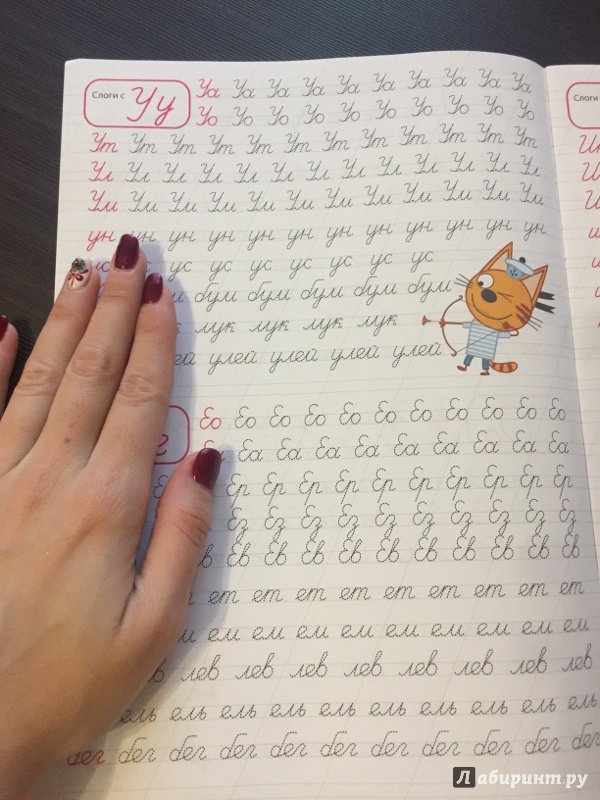 Слоги с Уу
Уа Уа Уа Уа Уа Уа Уа Уа Уа Уа
Уо Уо Уо Уо Уо Уо Уо Уо Уо Уо
Ут Ут Ут Ут Ут Ут Ут Ут Ут Ут Ут Ут
Ул Ул Ул Ул Ул Ул Ул Ул Ул Ул Ул Ул Ул
Ум Ум Ум Ум Ум Ум Ум Ум Ум Ум Ум Ум
ун ун ун ун ун ун ун ун ун ун ун ун
ус ус ус ус ус ус ус
бум бум бум бум бум
лук лук лук лук
улей улей улей улей
Ео Ео Ео Ео Ео Ео Ео Ео Ео Ео Ео
Еа Еа Еа Еа Еа Еа Еа Еа Еа
Ер Ер Ер Ер Ер Ер Ер Ер Ер Ер
Ез Ез Ез Ез Ез Ез Ез Ез Ез Ез
Ев Ев Ев Ев Ев Ев Ев Ев Ев Ев
ет ет ет ет ет ет ет ет ет
ем ем ем ем ем ем ем ем ем
лев лев лев лев лев лев лев лев
ель ель ель ель ель ель ель ель ель ель
бег бег бег бег бег бег бег бег бег бег
Слоги
Лабиринт.ру